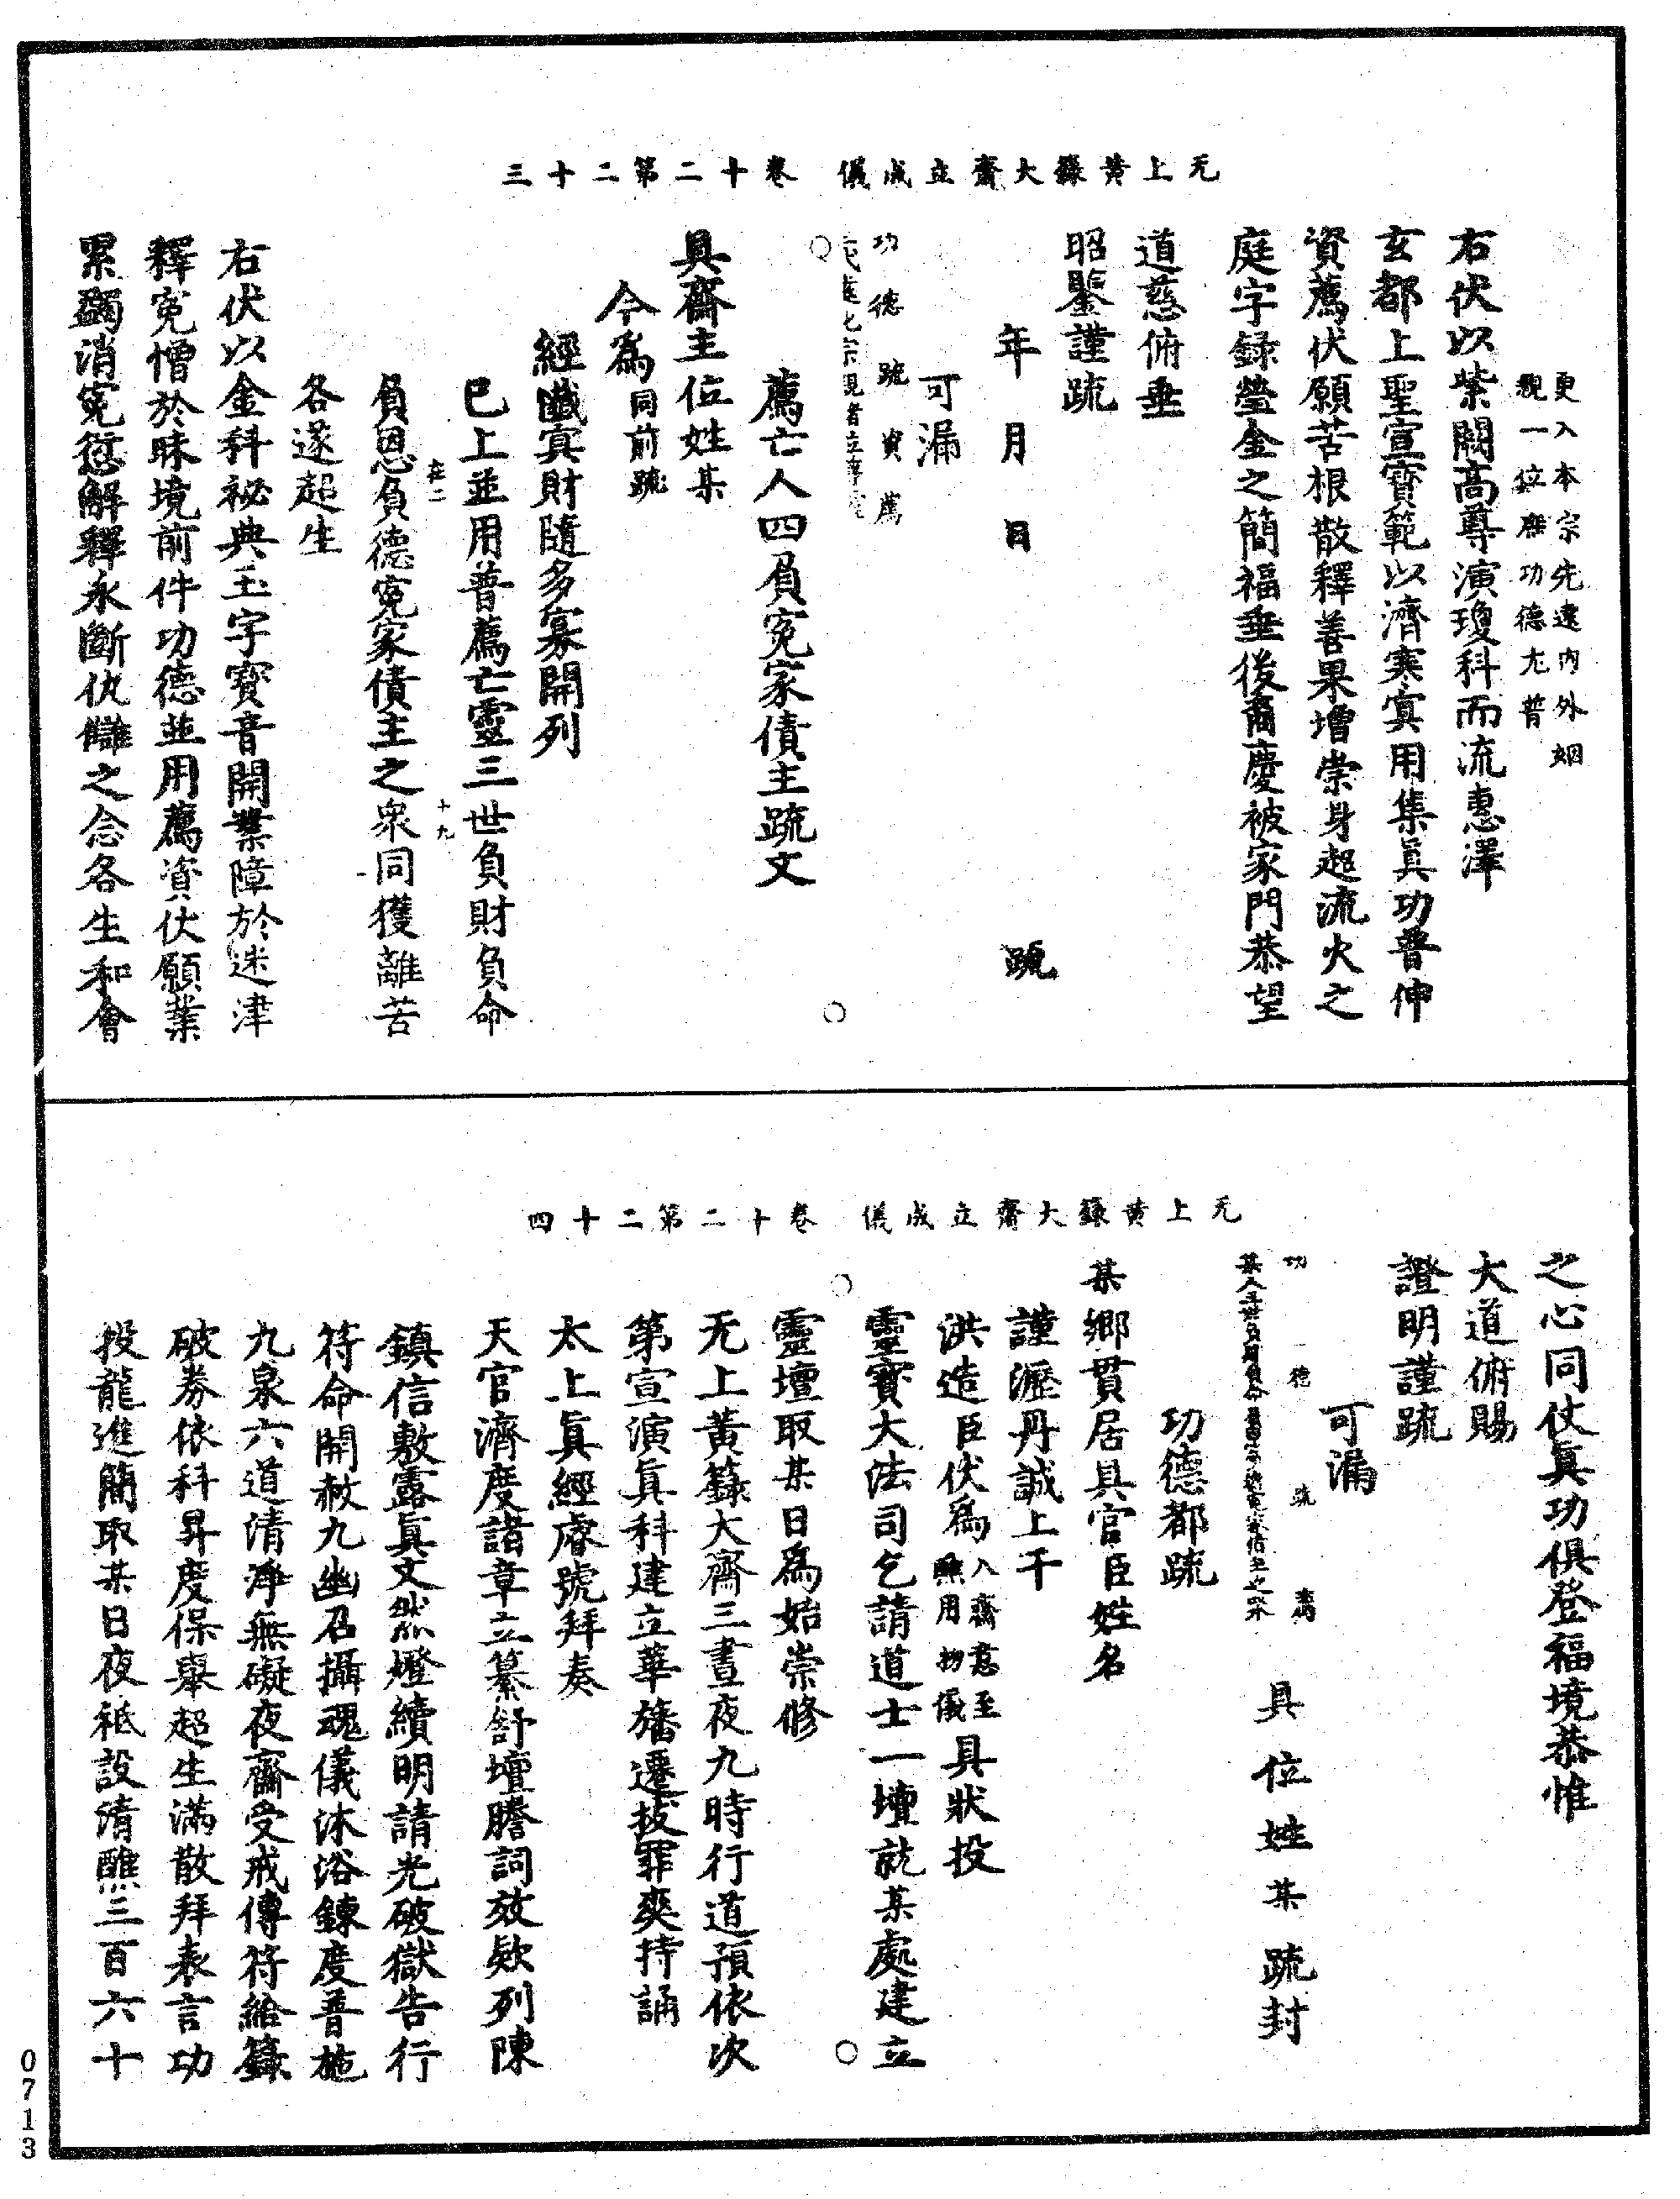 无上黃籙大齋立成儀　卷十二第二十三
更入本宗先遠內外姻
親一位應功德尤普
右伏以紫闕高尊演瓊科而流惠澤
玄都上聖宣寶範以濟寒冥用集眞功普伸
資薦伏願苦根散釋善果增崇身超流火之
庭字錄瑩金之簡福垂後裔慶被家門恭望
道慈俯垂
昭鑒謹疏
年　月　日　　疏
可漏
功德疏資薦
遠化宗親者位
薦亡人四負寃家債主疏文
具齋主位姓某
今爲同前疏
經懺冥財隨多寡開列
巳上並用普薦亡靈三世負財負命
負恩負德寃家債主之衆同獲離苦
十九
各遂超生
右伏以金科祕典玉字寶音開業障於迷津
釋寃憎於昧境前件功德並用薦資伏願業
累蠲消寃愆解釋永斷仇讎之念各生和會
无上黃籙大齋立成儀　卷十二第二十四
之心同仗眞功俱登福境恭惟
大道俯賜
證明謹疏
可漏
功德疏薦
某人三世負財負命負恩負德寃家債主之衆
具位姓某疏封
功德都疏
某鄉貫居具官臣姓名
謹瀝丹誠上干
洪造臣伏爲入齋意至熙用物儀具狀投
靈寶大法司乞請道士一壇就某處建立
靈壇取某日爲始崇修
无上黃籙大齋三晝夜九時行道預依次
第宣演眞科建立華旛遷拔罪爽持誦
太上眞經睿號拜奏
天官濟度諸章立纂舒壇謄詞效欵列陳
鎮信敷露眞文然燈續明請光破獄告行
符命開赦九幽召攝魂儀沐浴鍊度普施
九泉六道清淨無礙夜齋受戒傳符給籙
破券依科昇度保舉超生滿散拜表言功
投龍進簡取某日夜祗設清醮三百六十
0713